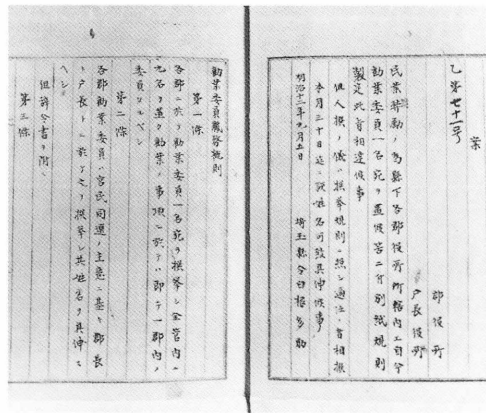 乙第七十一号
案
郡役所
戸長役所
民業奨励ノ為メ県下各郡役所所轄内ニ自今
勧業委員一名宛ヲ置候筈ニ付別紙規則
製定此旨相達候事
但人撰ノ儀ハ撰挙規則ニ照シ適任ノ者相撰
本月三十日迄ニ族姓名可致具伸候事
明治十二年九月五日　埼玉県令白根多助
勧業委員職務規則
第一條
各郡ニ於テ勧業委員一名宛ヲ撰挙シ全管内ニ
九名ヲ置ク勧業ノ事項ニ於テハ即チ一郡内ノ
委員タルベシ
第二條
各郡勧業委員ハ官民同選ノ主意ニ基キ郡長
ト戸長トニ於テ之ヲ撰挙シ其姓名ヲ具伸ス
ヘシ
但辞令書ヲ附
第三條